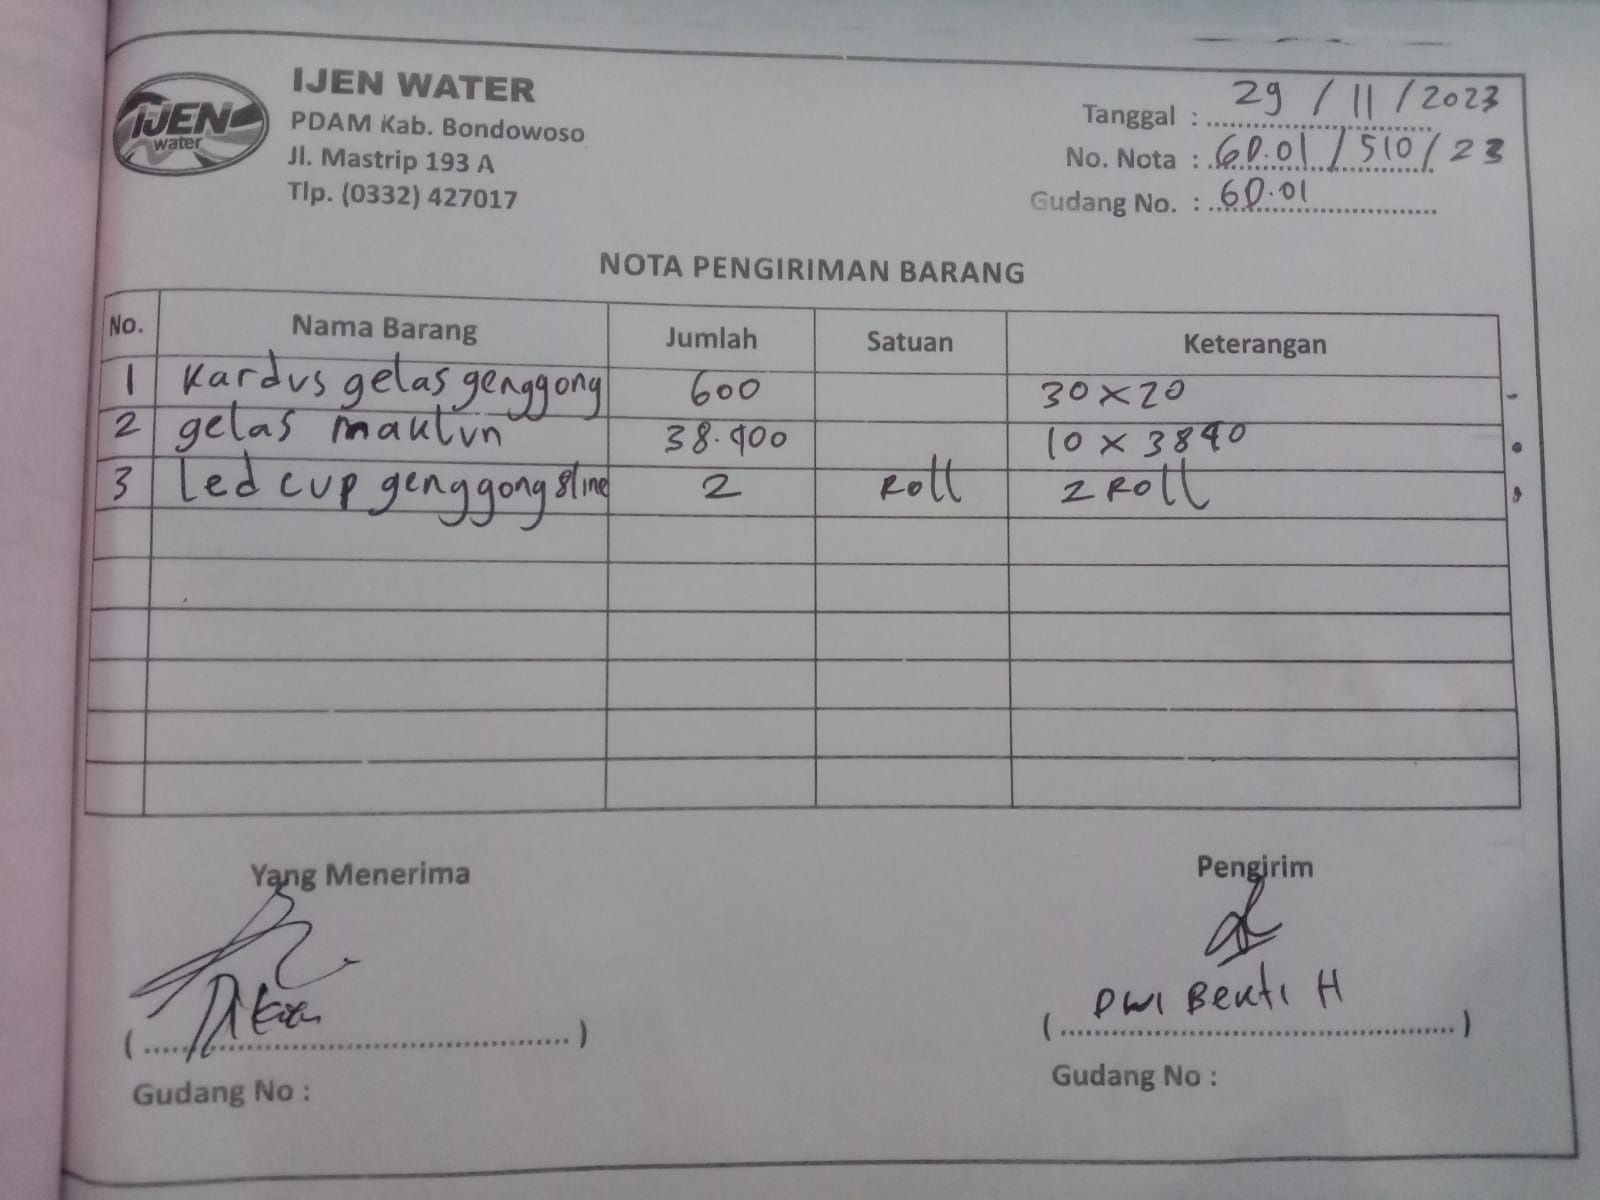 IJEN WATER
IJEN
water
PDAM Kab. Bondowoso
Jl. Mastrip 193 A
Tlp. (0332) 427017
Tanggal : 29 / 11 / 2023
No. Nota : GD.01 / 510 / 23
Gudang No. : GD.01
NOTA PENGIRIMAN BARANG
No. Nama Barang Jumlah Satuan Keterangan
1 Kardus gelas genggong 600 30 x 20
2 gelas maklun 38.400 10 x 3840
3 Led cup genggong 8 line 2 Roll 2 Roll
Yang Menerima Pengirim
( ) ( DWI BEKTI H )
Gudang No : Gudang No :